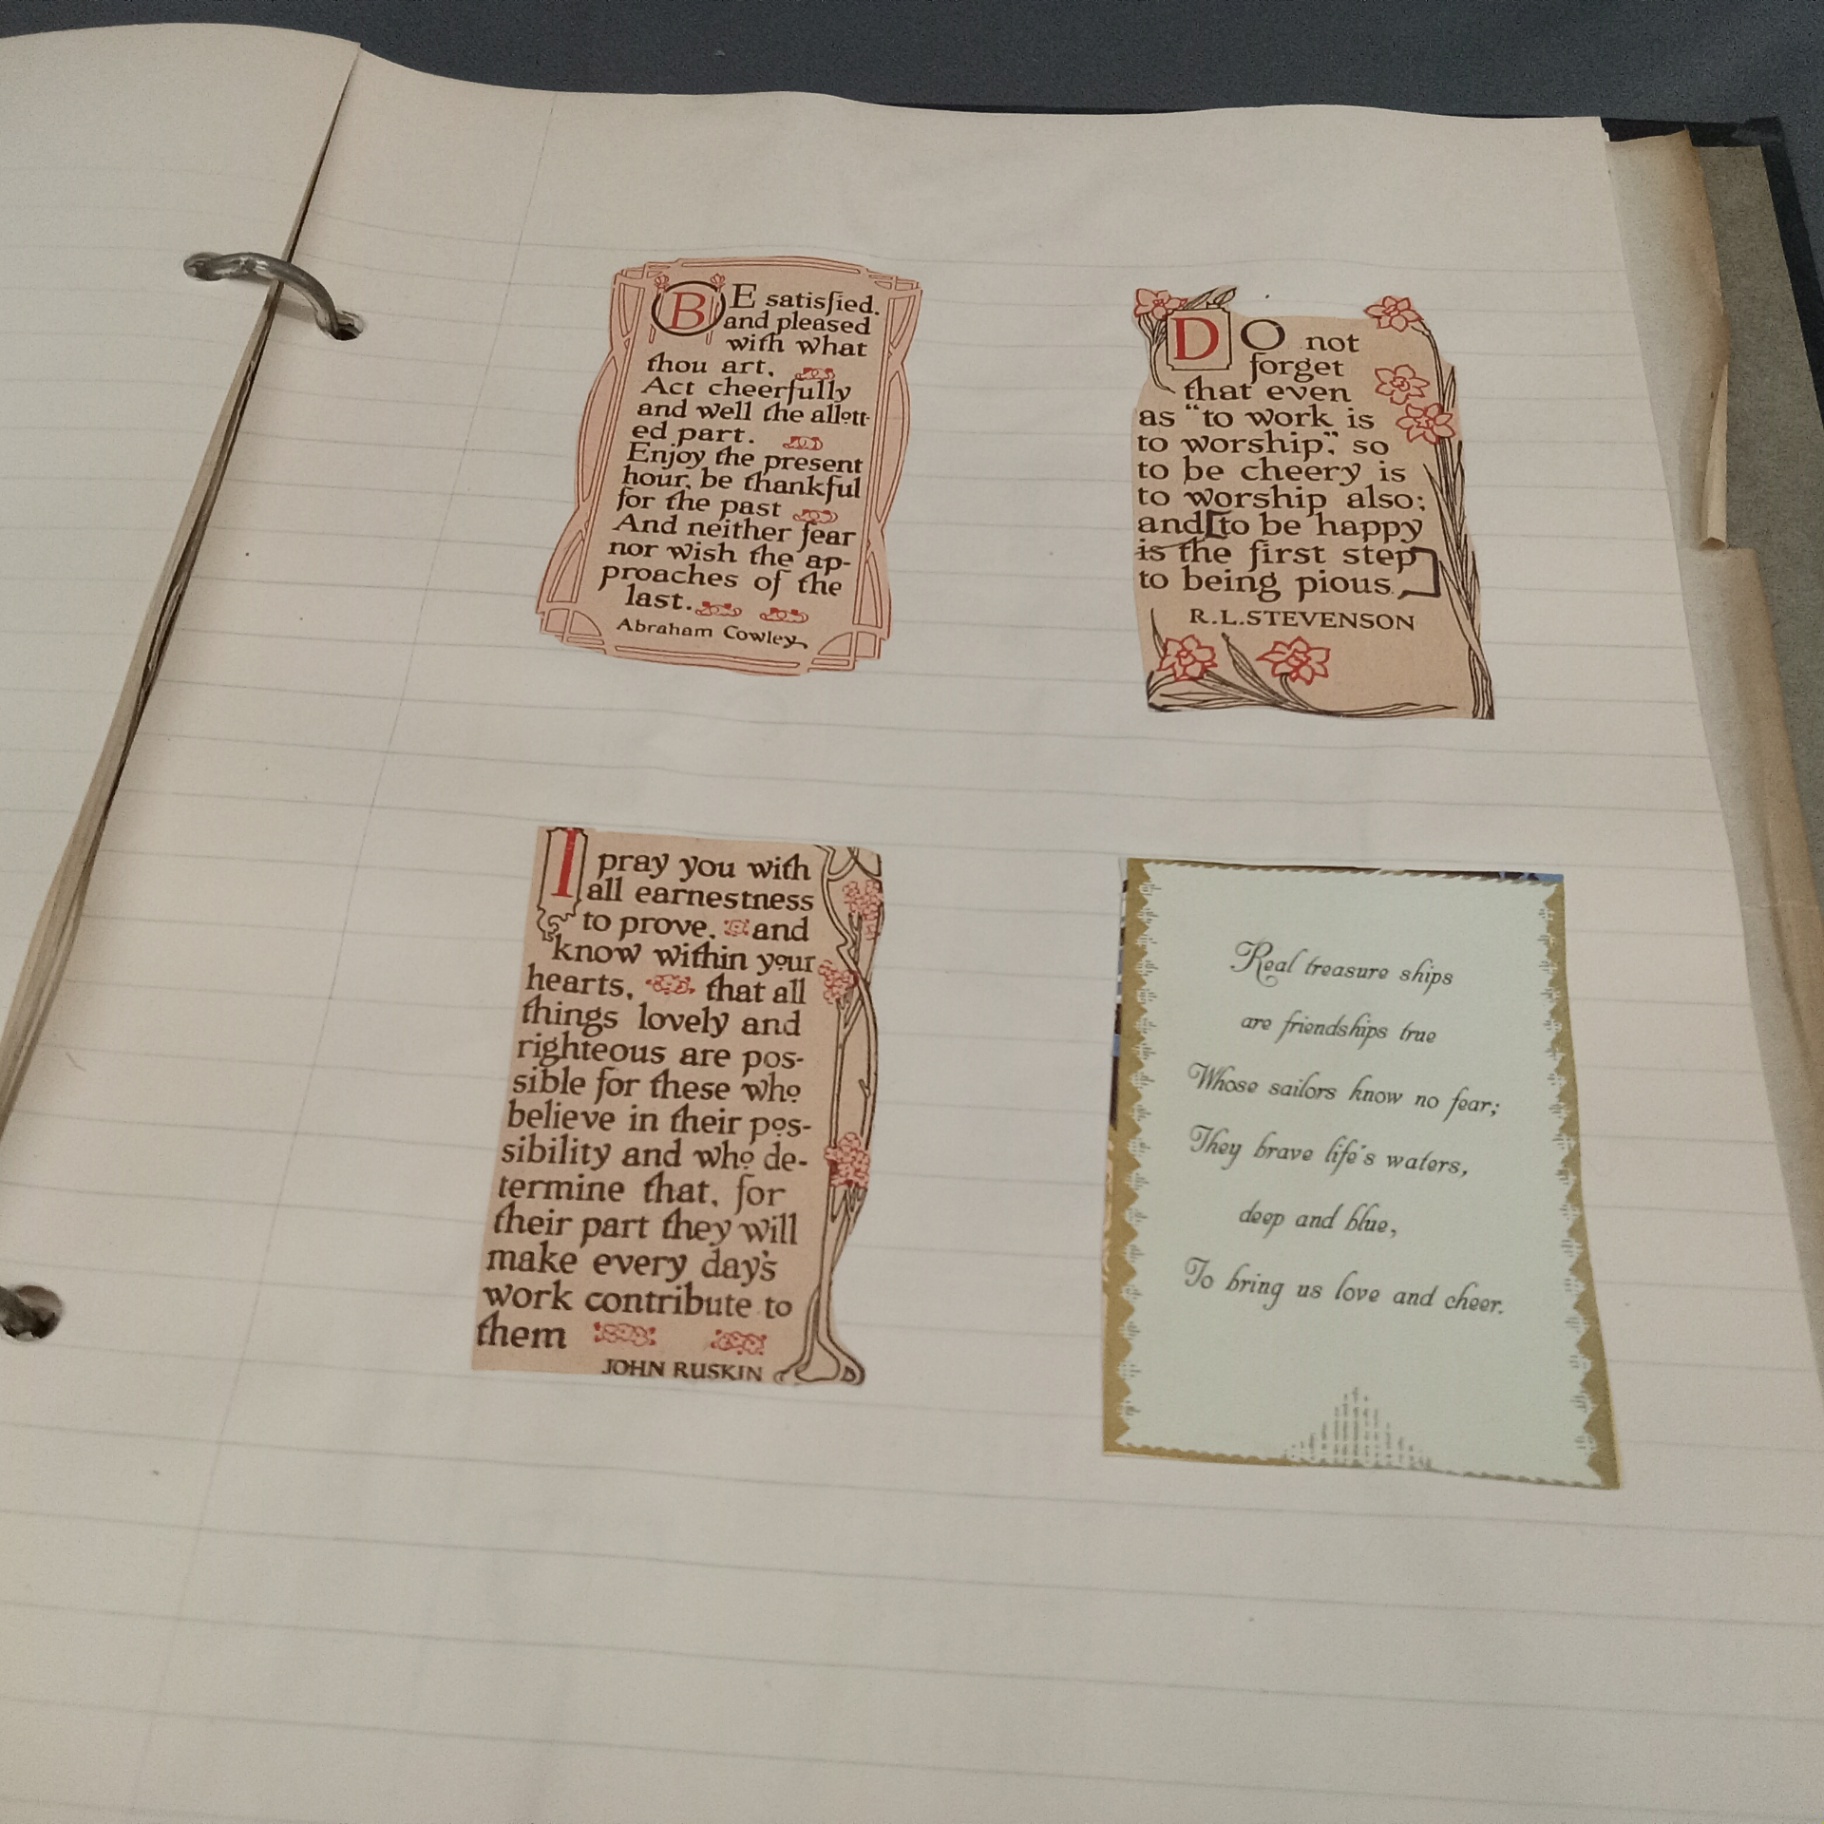 BE satisfied.
and pleased
with what
thou art.
Act cheerfully
and well the allott-
ed part.
Enjoy the present
hour, be thankful
for the past
And neither fear
nor wish the ap-
proaches of the
last.
Abraham Cowley
DO not
forget
that even
as "to work is
to worship", so
to be cheery is
to worship also;
and [to be happy
is the first step
to being pious.]
R.L.STEVENSON
I pray you with
all earnestness
to prove, and
know within your
hearts, that all
things lovely and
righteous are pos-
sible for these who
believe in their pos-
sibility and who de-
termine that, for
their part they will
make every day's
work contribute to
them
JOHN RUSKIN
Real treasure ships
are friendships true
Whose sailors know no fear;
They brave life's waters,
deep and blue,
To bring us love and cheer.